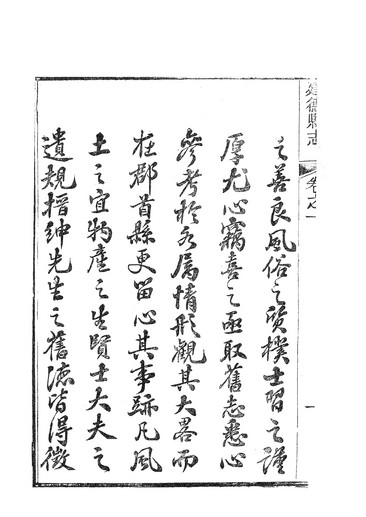 建德縣志
卷之一
一
之善良風俗之質樸士習之謹
厚尤心竊喜之亟取舊志悉心
參考於各屬情形觀其大畧而
在郡首縣更留心其事跡凡風
土之宜物產之生賢士大夫之
遺規搢紳先生之舊德皆得徵